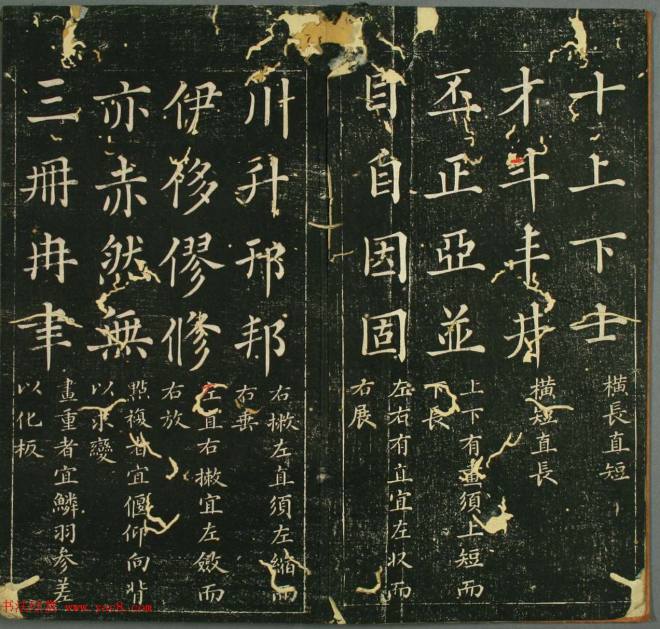 十上下士
橫長直短
才斗丰井
橫短直長
丕正亞並
上下有畫須上短而
下長
目自因固
左右有直宜左收而
右展
川升邦
右撇左直須左縮而
右垂
伊侈僇修
左直右撇宜左斂而
右放
亦赤然無
點複者宜偃仰向背
以求變
三冊冉聿
畫重者宜鱗羽參差
以化板